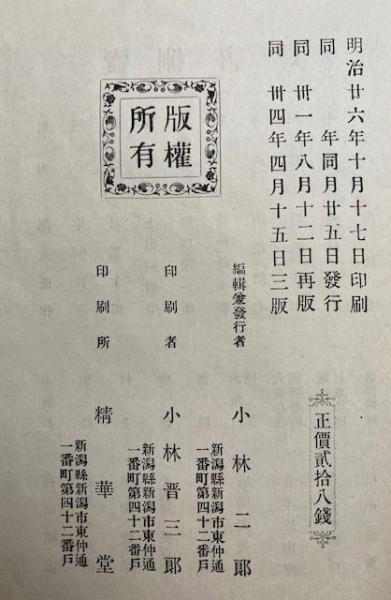 明治廿六年十月十七日印刷
同　年同月廿五日發行
同　卅一年八月十二日再版
同　卅四年四月十五日三版
正價貳拾八錢
版權
所有
編輯兼發行者
小林二郎
新潟縣新潟市東仲通
一番町第四十二番戸
印刷者
小林晋三郎
新潟縣新潟市東仲通
一番町第四十二番戸
印刷所
精華堂
新潟縣新潟市東仲通
一番町第四十二番戸